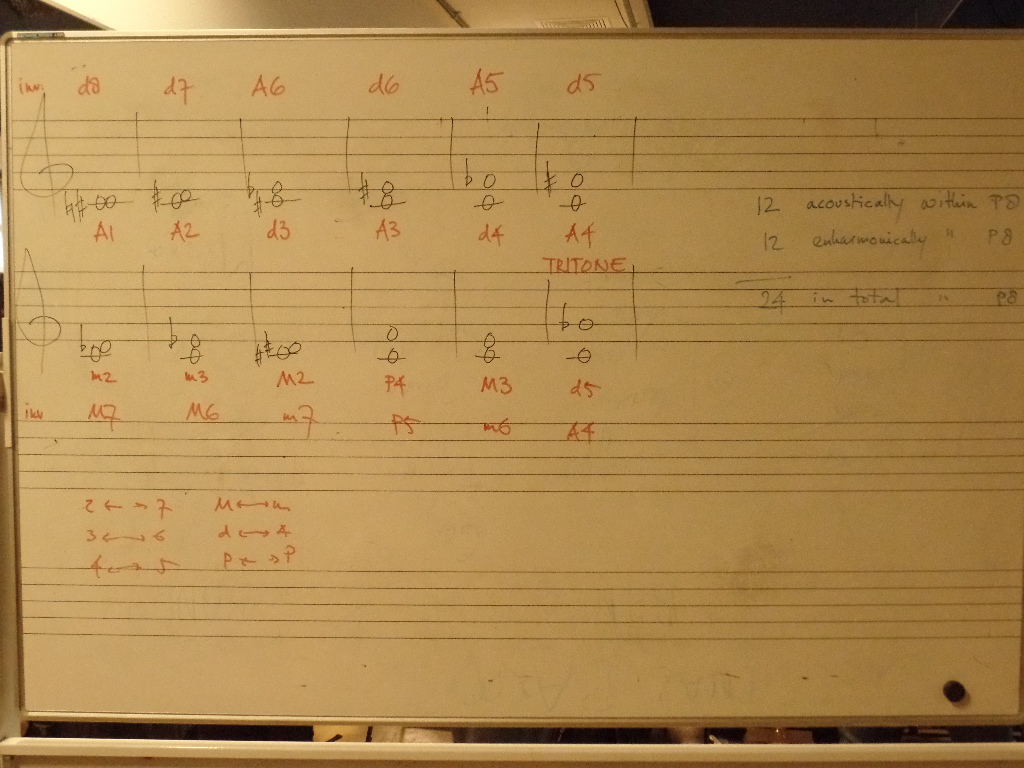 inv. d8 d7 A6 d6 A5 d5
A1 A2 d3 A3 d4 A4
TRITONE
12 acoustically within P8
12 enharmonically " P8
24 in total " P8
m2 m3 M2 P4 M3 d5
inv M7 M6 m7 P5 m6 A4
2 ↔ 7 M ↔ m
3 ↔ 6 d ↔ A
4 ↔ 5 P ↔ P